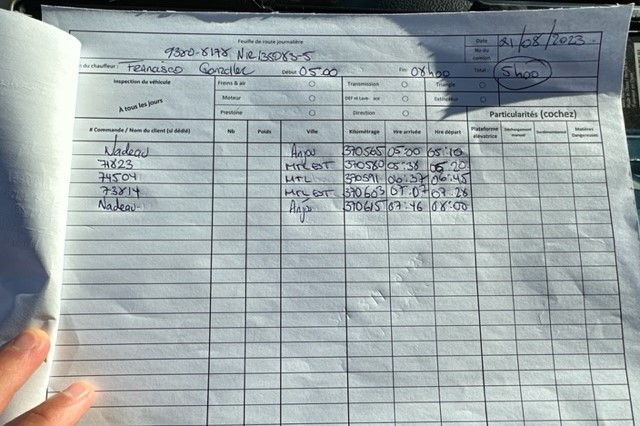 Feuille de route journalière
Date 21/08/2023
9380-8178 NIR 135083-5
No du camion
du chauffeur : Francisco González Début 05:00 Fin: 08h00 Total: 5h00
Inspection du véhicule Freins & air Transmission Triangle
À tous les jours Moteur DEF et Lave- Extincteur
Prestone Direction Particularités (cochez)
# Commande / Nom du client (si dédié) Nb Poids Ville Kilométrage Hre arrivée Hre départ Plateforme élévatrice Déchargement manuel Surdimensionné Matières Dangereuses
Nadeau Anjou 370565 05:00 05:10
71823 MTL EST 370580 05:38 06:20
74504 MTL 370591 06:37 06:45
73814 MTL EST 370603 07:07 07:28
Nadeau Anjou 370615 07:46 08:00